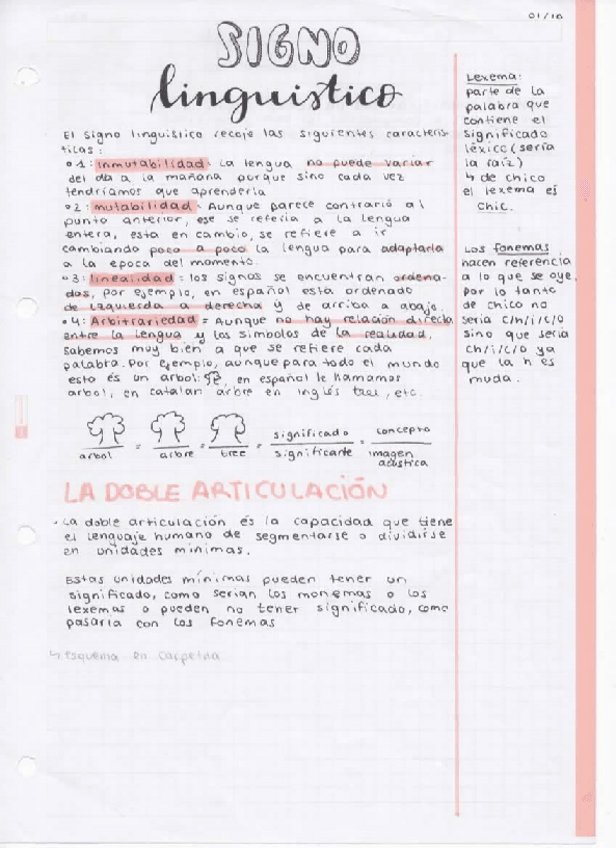 01/10
SIGNO
linguistico
El signo linguistico recoje las siguientes caracterís-
ticas:
1: Inmutabilidad: La lengua no puede variar
del día a la mañana porque sino cada vez
tendríamos que aprenderla
2: mutabilidad: Aunque parece contrario al
punto anterior, ese se refería a la lengua
entera, esta en cambio, se refiere a ir
cambiando poco a poco la lengua para adaptarla
a la epoca del momento.
3: linealidad = los signos se encuentran ordena-
dos, por ejemplo, en español está ordenado
de izquierda a derecha y de arriba a abajo.
4: Arbitrariedad = Aunque no hay relación directa
entre la lengua y los símbolos de la realidad,
sabemos muy bien a que se refiere cada
palabra. Por ejemplo, aunque para todo el mundo
esto es un arbol: , en español le llamamos
arbol, en catalan arbre en inglés tree, etc.
arbol = arbre = tree = significado / significante = concepto / imagen acústica
LA DOBLE ARTICULACIÓN
La doble articulación és la capacidad que tiene
el lenguaje humano de segmentarse o dividirse
en unidades mínimas.
Estas unidades mínimas pueden tener un
significado, como serían los monemas o los
lexemas o pueden no tener significado, como
pasaría con los fonemas
↳ esquema en carpetna
Lexema:
parte de la
palabra que
contiene el
significado
léxico (sería
la raíz)
↳ de chico
el lexema es
chic.
Los fonemas
hacen referencia
a lo que se oye,
por lo tanto
de chico no
sería c/h/i/c/o
sino que sería
ch/i/c/o ya
que la h es
muda.